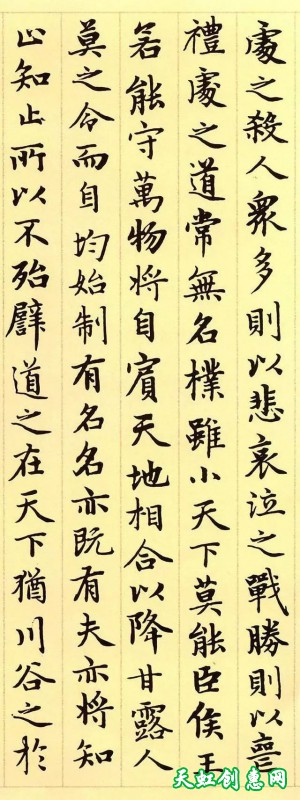 處之殺人衆多則以悲哀泣之戰勝則以喪
禮處之道常無名樸雖小天下莫能臣侯王
若能守萬物將自賓天地相合以降甘露人
莫之令而自均始制有名名亦既有夫亦將知
止知止所以不殆譬道之在天下猶川谷之於
天虹创意网